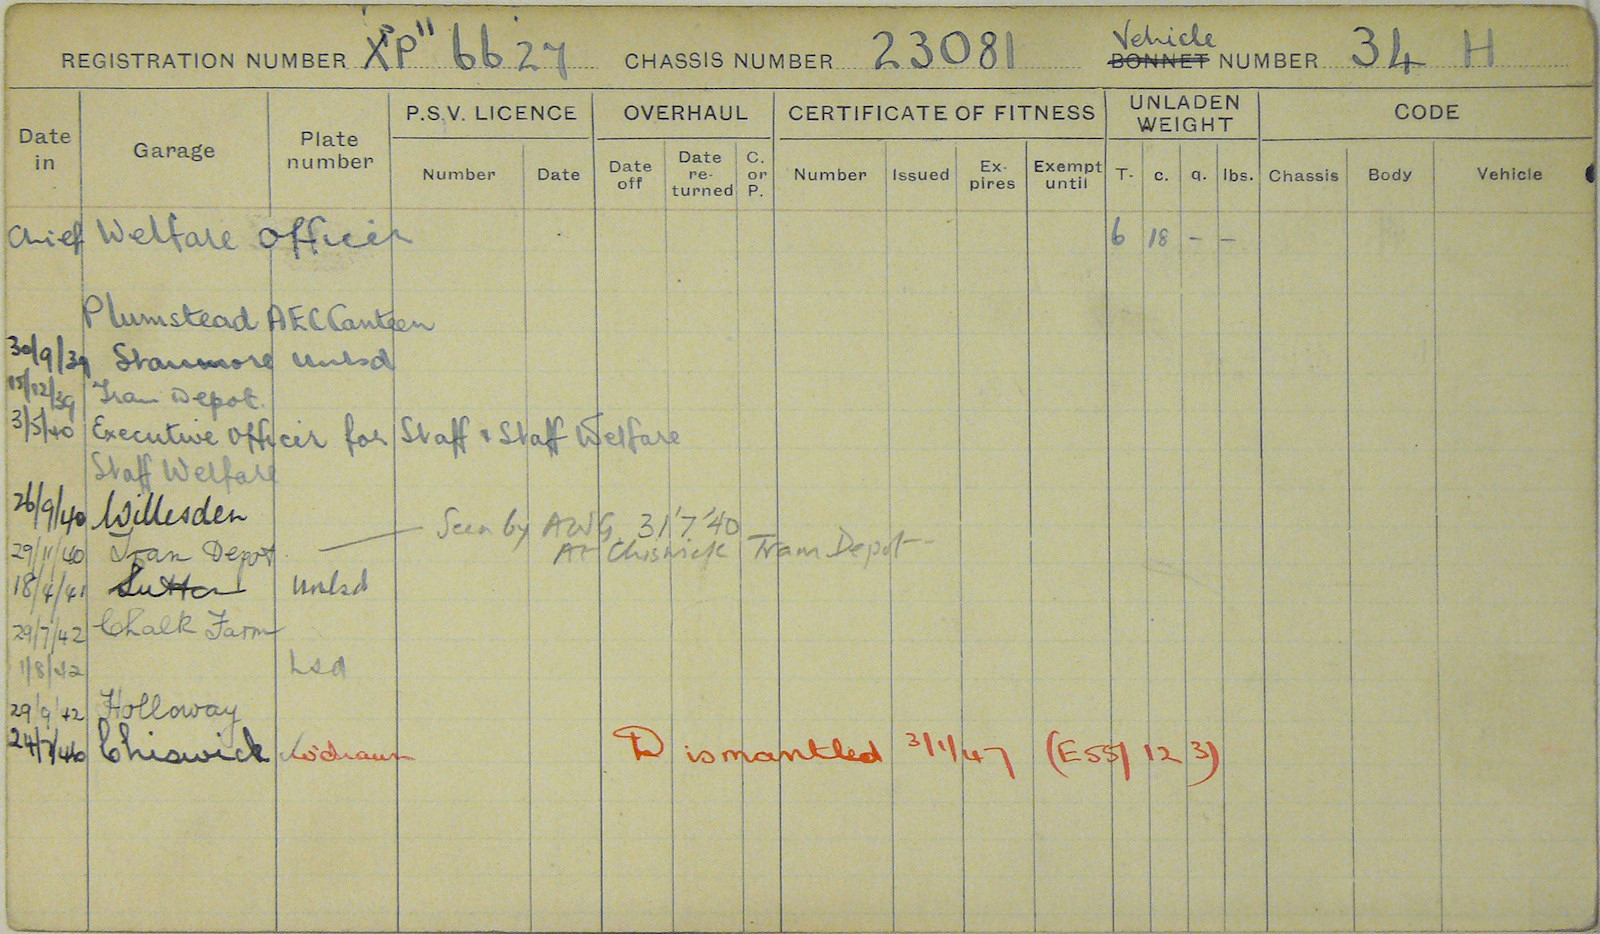 REGISTRATION NUMBER XP 6627 CHASSIS NUMBER 23081 Vehicle BONNET NUMBER 34 H
Date in Garage Plate number P.S.V. LICENCE OVERHAUL CERTIFICATE OF FITNESS UNLADEN WEIGHT CODE
Number Date Date off Date re-turned C. or P. Number Issued Ex-pires Exempt until T. c. q. lbs. Chassis Body Vehicle
Chief Welfare Officer 6 18 - -
Plumstead AEC Canteen
30/9/39 Stanmore unlsd
15/12/39 Tram Depot.
3/5/40 Executive Officer for Staff & Staff Welfare
Staff Welfare
26/9/40 Willesden
Seen by AWG. 31'7'40
29/11/40 Tram Depot At Chiswick Tram Depot
18/4/41 Sutton unlsd
29/7/42 Chalk Farm
1/8/42 Lsd
29/9/42 Holloway
24/7/46 Chiswick Wdrawn Dismantled 3/1/47 (E55/123)